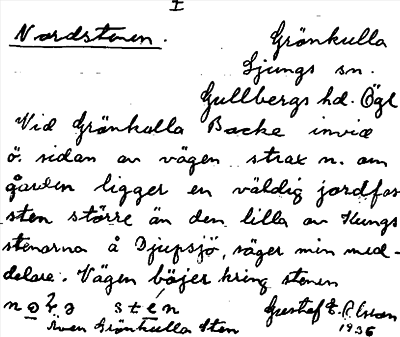 I
Nordstenen.
Grönkulla
Ljungs sn.
Gullbergs hd. Ögl
Vid Grönkulla Backe invid
ö. sidan av vägen strax n. om
gården ligger en väldig jordfas-
sten större än den lilla av Kungs
stenarna å Djupsjö, säger min med-
delare. Vägen böjer kring stenen
stén Gustaf E.
även Grönkulla Sten 1936